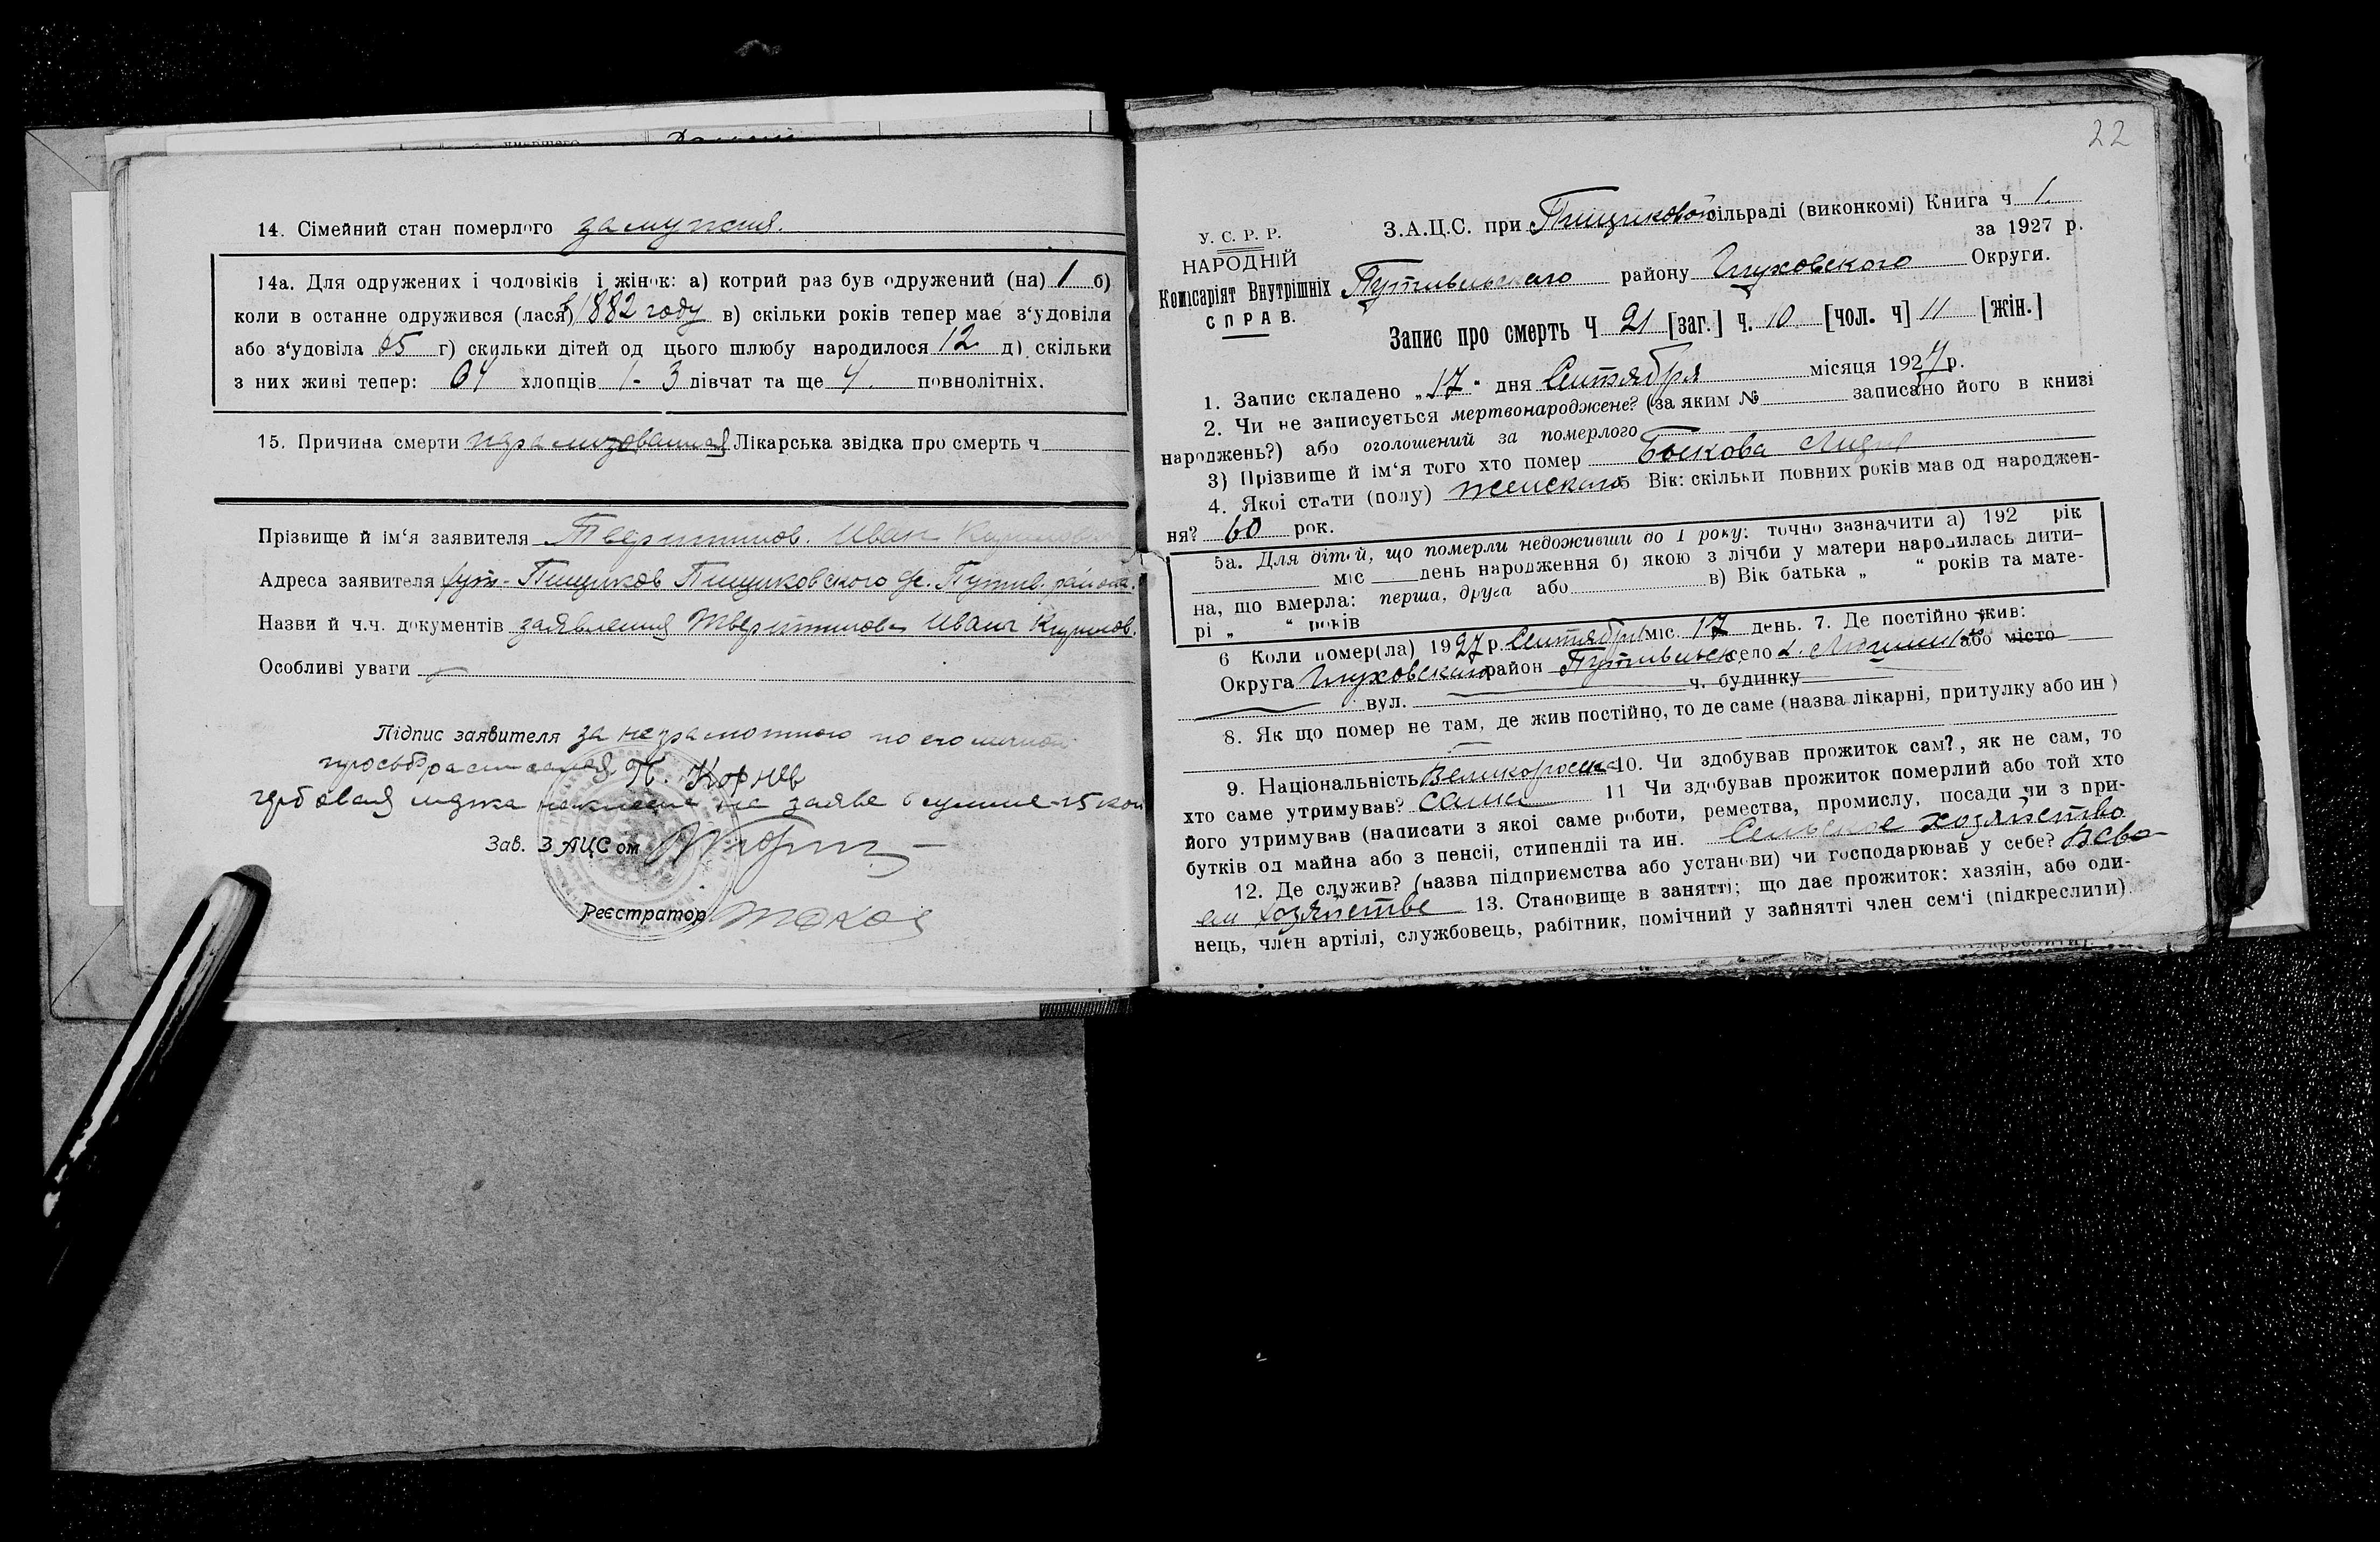 14. Сімейний стан померлого замужня.
14а. Для одружених і чоловіків і жінок: а) котрий раз був одружений (на) 1 б)
коли в останне одружився (лася) в 1882 году в) скільки років тепер має з'удовіла
або з'удовіла 65 г) скильки дітей од цього шлюбу народилося 12 д) скільки
з них живі тепер: 04 хлопців 1- 3 дівчат та ще 4. повнолітніх.
15. Причина смерти Лікарська звідка про смерть ч
Прізвище й ім'я заявителя Иван
Адреса заявителя хут- Пищиков Пищиковского Путив. района.
Назви й ч.ч. документів заявления Ивана
Особливі уваги
Підпис заявителя за неграмотного по его личной
просьбе П. Корнев
гербовая марка наклеена на заяве в сумме 15 коп
Зав. ЗАЦСом
Реєстратор
22
У. С. Р. Р.
НАРОДНІЙ
Комісаріят Внутрішніх
СПРАВ.
З.А.Ц.С. при Пищиковой сільраді (виконкомі) Книга ч 1.
за 1927 р.
Путивльского району Глуховского Округи.
Запис про смерть Ч 21 [заг.] ч. 10. [чол. ч] 11 [жін.]
1. Запис складено „17" дня Сентября місяця 1927 р.
2. Чи не записується мертвонароджене? (за яким № записано його в книзі
народжень?) або оголошений за померлого
3) Прізвище й ім'я того хто помер Быкова
4. Якої стати (полу) женского 5 Вік: скільки повних років мав од народжен-
ня? 60 рок.
5а. Для дітей, що померли недоживши до 1 року: точно зазначити а) 192 рік
міс день народження б) якою з лічби у матери народилась дити-
на, що вмерла: перша, друга або в) Вік батька „ " років та мате-
рі „ " років
6 Коли помер(ла) 1927 р. Сентября міс. 17 день. 7. Де постійно жив:
Округа Глуховского район Путивльск село або місто
вул. ч. будинку
8. Як що помер не там, де жив постійно, то де саме (назва лікарні, притулку або ин)
9. Національність Великоросска 10. Чи здобував прожиток сам?, як не сам, то
хто саме утримував? сама 11 Чи здобував прожиток померлий або той хто
його утримував (написати з якої саме роботи, ремества, промислу, посади чи з при-
бутків од майна або з пенсії, стипендії та ин. Сельское хозяйство
12. Де служив? (назва підприємства або установи) чи господарював у себе? В сво
ем хозяйстве 13. Становище в занятті; що дає прожиток: хазяін, або оди-
нець, член артілі, службовець, рабітник, помічний у зайнятті член сем'ї (підкреслити).